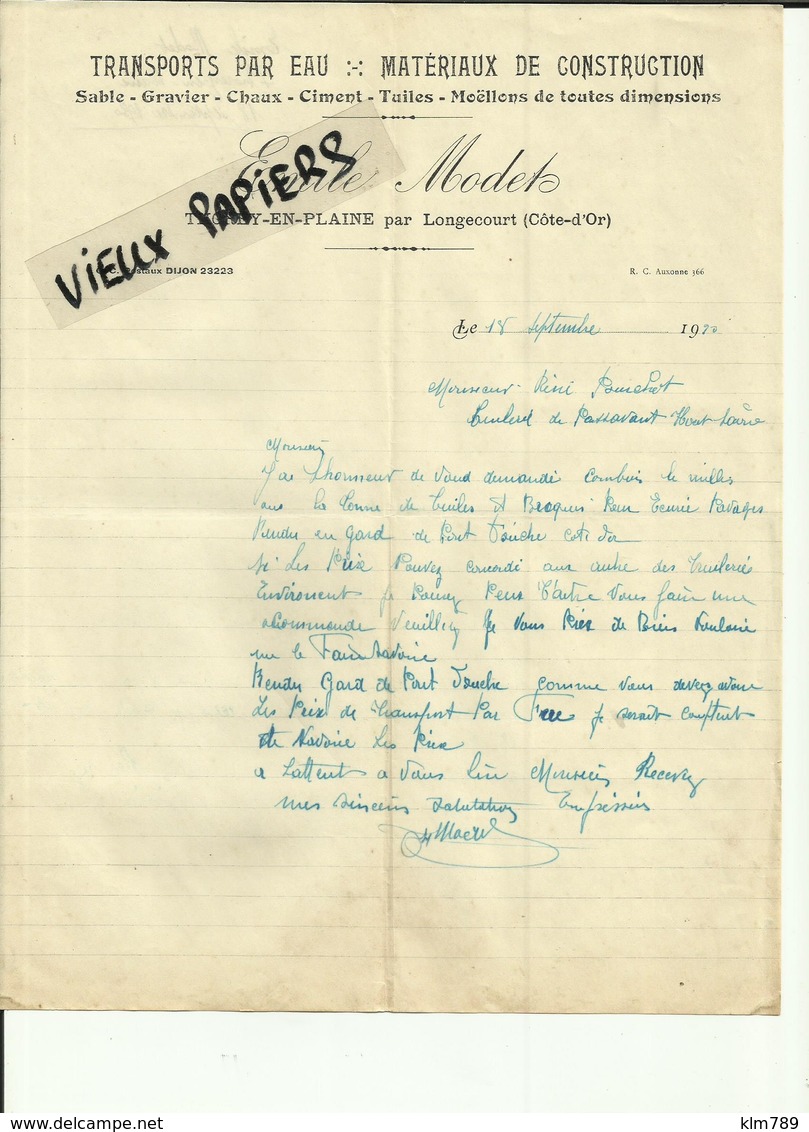 TRANSPORTS PAR EAU :-: MATÉRIAUX DE CONSTRUCTION
Sable - Gravier - Chaux - Ciment - Tuiles - Moëllons de toutes dimensions
Emile Modet
VIEUX PAPIERS
THOREY-EN-PLAINE par Longecourt (Côte-d'Or)
C. C. Postaux DIJON 23223
R. C. Auxonne 366
Le 18 Septembre 1930
Monsieur Réné
Tuileri de Passavant Haut Saône
Monsieur
J'ai Lhonneur de vous demandé combien le milles
ou la tonne de tuiles et Briques Pour Ecurie Pavages
Rendu en Gard de Port Touche cote dor
si Les Prix Pouvez concordé aux autre des Tuileries
Environent je Pourez Peut Taitre vous faire une
Commande Veuillez je vous Pries de Bien Vouloire
me le Faire Savoire
Rendu Gard de Port Touche comme vous devez avoir
Les Prix de Transport Par Fere je serait content
de Savoire Les Prix
a Lattent a vous lire Monsieur Recevez
mes sincères salutations Empréssées